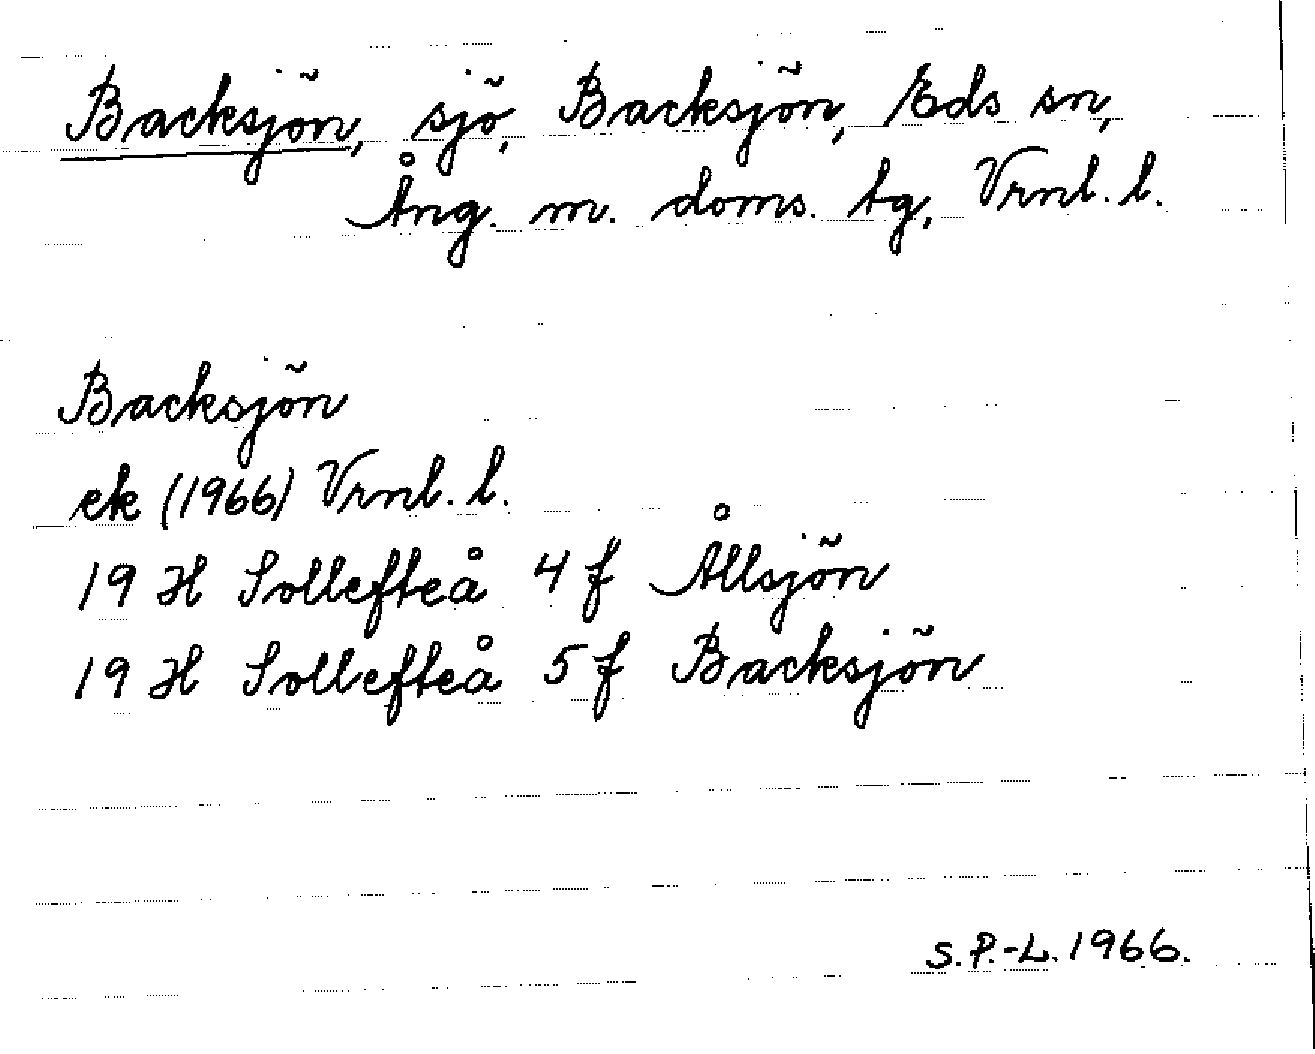 Backsjön, sjö, Backsjön, Eds sn,
Ång. m. doms. tg, Vrnl. l.
Backsjön
ek (1966) Vrnl. l.
19 H Sollefteå 4 f Ållsjön
19 H Sollefteå 5 f Backsjön
S.P.-L. 1966.